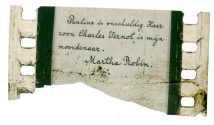 Pauline is onschuldig. Heer
zoon Charles Vernot is mijn
moordenaar.
Martha Robin.